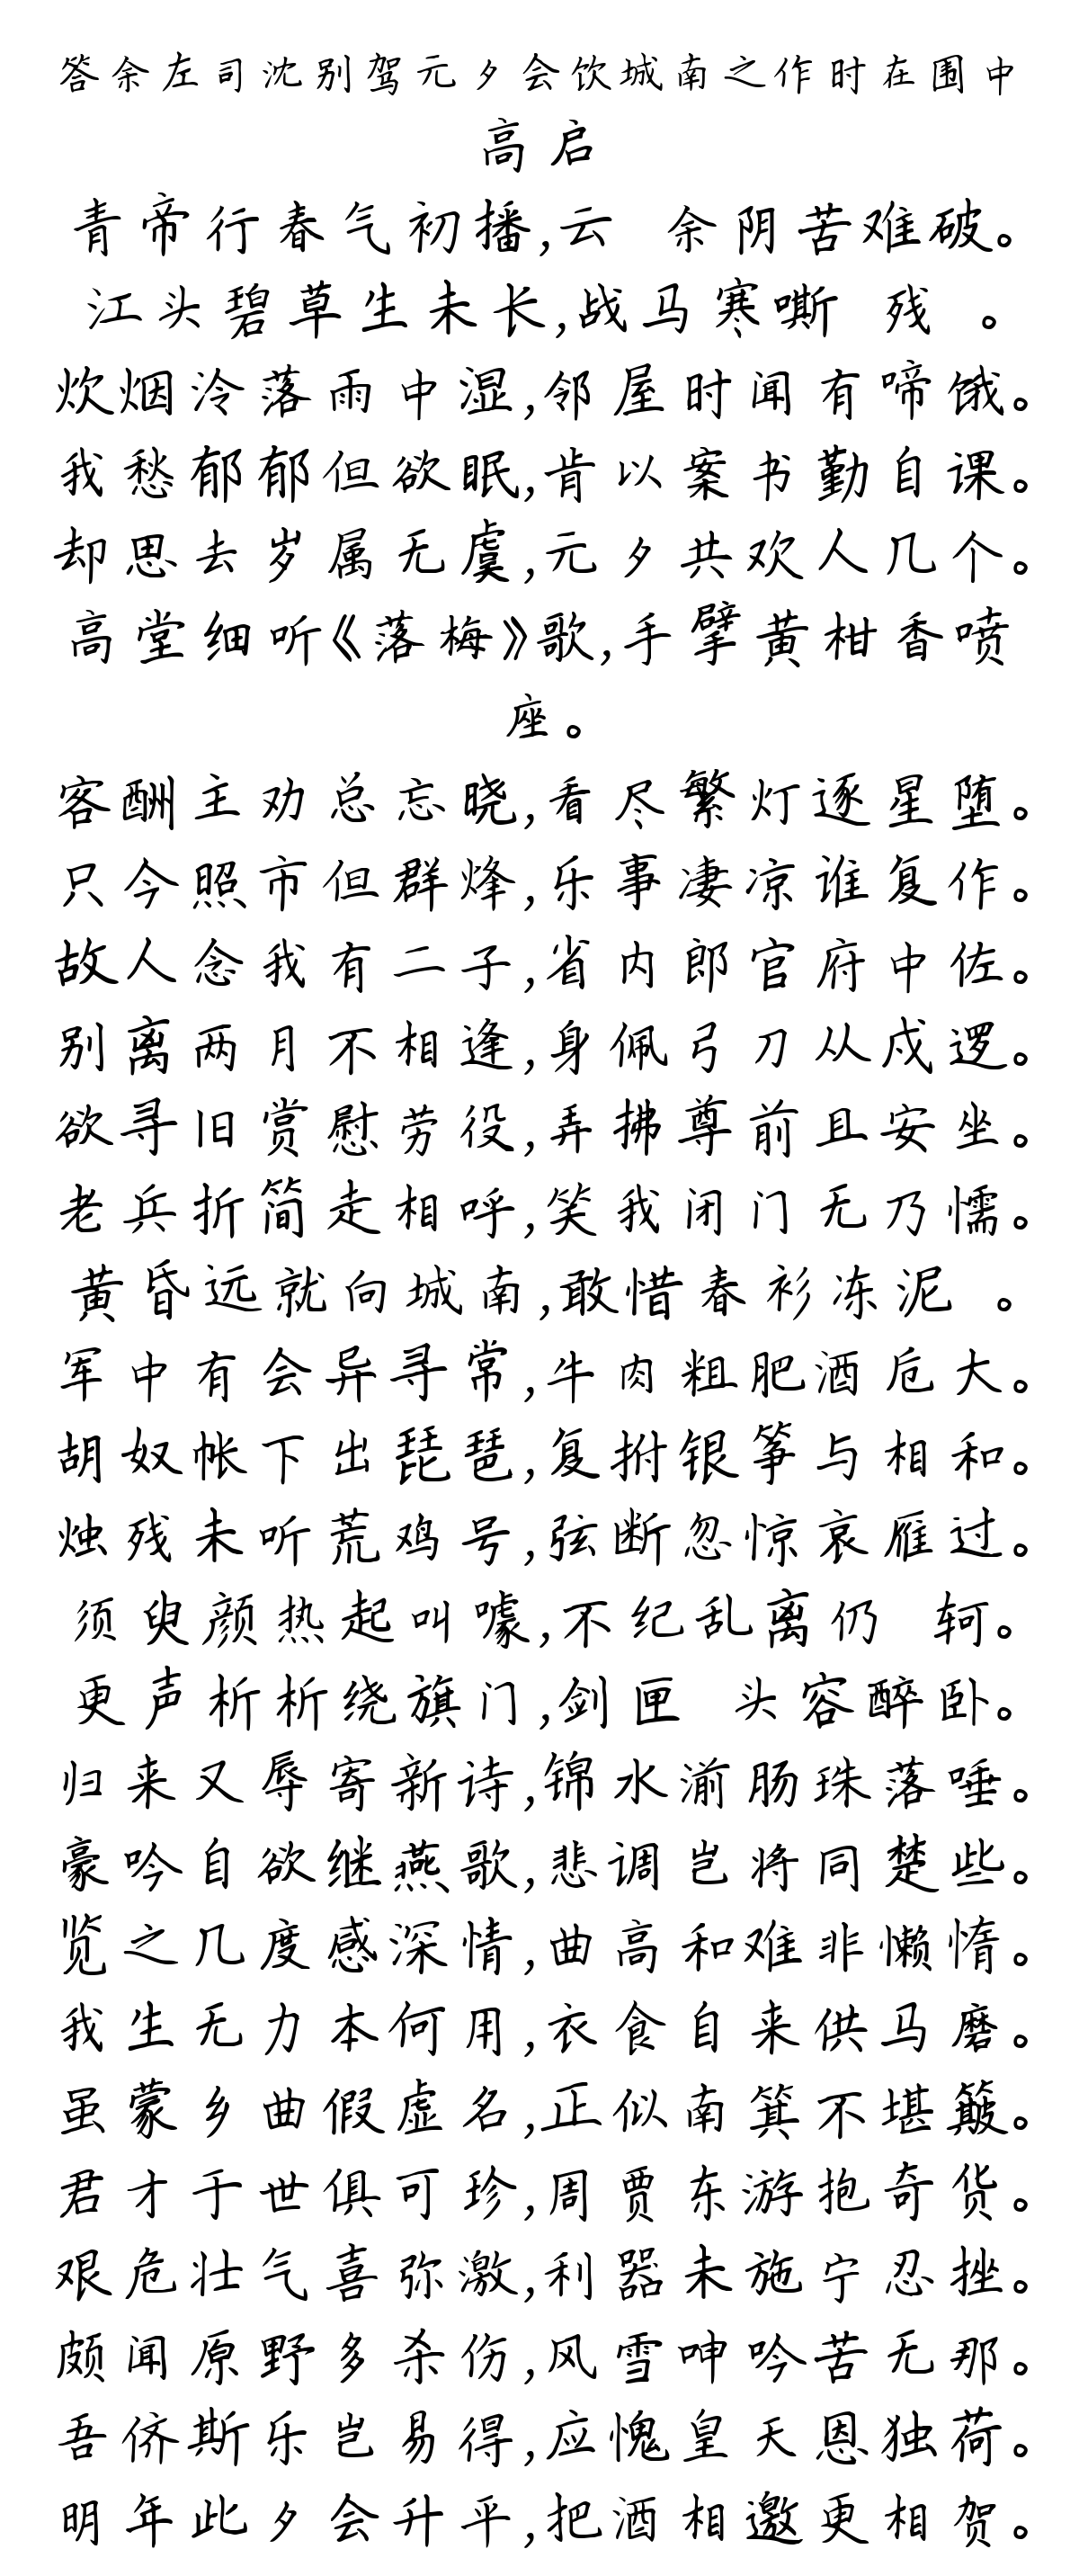 答余左司沈别驾元夕会饮城南之作时在围中
高启
青帝行春气初播,云 余阴苦难破。
江头碧草生未长,战马寒嘶 残 。
炊烟泠落雨中湿,邻屋时闻有啼饿。
我愁郁郁但欲眠,肯以案书勤自课。
却思去岁属无虞,元夕共欢人几个。
高堂细听《落梅》歌,手擘黄柑香喷
座。
客酬主劝总忘晓,看尽繁灯逐星堕。
只今照市但群烽,乐事凄凉谁复作。
故人念我有二子,省内郎官府中佐。
别离两月不相逢,身佩弓刀从戍逻。
欲寻旧赏慰劳役,弄拂尊前且安坐。
老兵折简走相呼,笑我闭门无乃懦。
黄昏远就向城南,敢惜春衫冻泥 。
军中有会异寻常,牛肉粗肥酒卮大。
胡奴帐下出琵琶,复拊银筝与相和。
烛残未听荒鸡号,弦断忽惊哀雁过。
须臾颜热起叫噱,不纪乱离仍 轲。
更声析析绕旗门,剑匣 头容醉卧。
归来又辱寄新诗,锦水湔肠珠落唾。
豪吟自欲继燕歌,悲调岂将同楚些。
览之几度感深情,曲高和难非懒惰。
我生无力本何用,衣食自来供马磨。
虽蒙乡曲假虚名,正似南箕不堪簸。
君才于世俱可珍,周贾东游抱奇货。
艰危壮气喜弥激,利器未施宁忍挫。
颇闻原野多杀伤,风雪呻吟苦无那。
吾侪斯乐岂易得,应愧皇天恩独荷。
明年此夕会升平,把酒相邀更相贺。